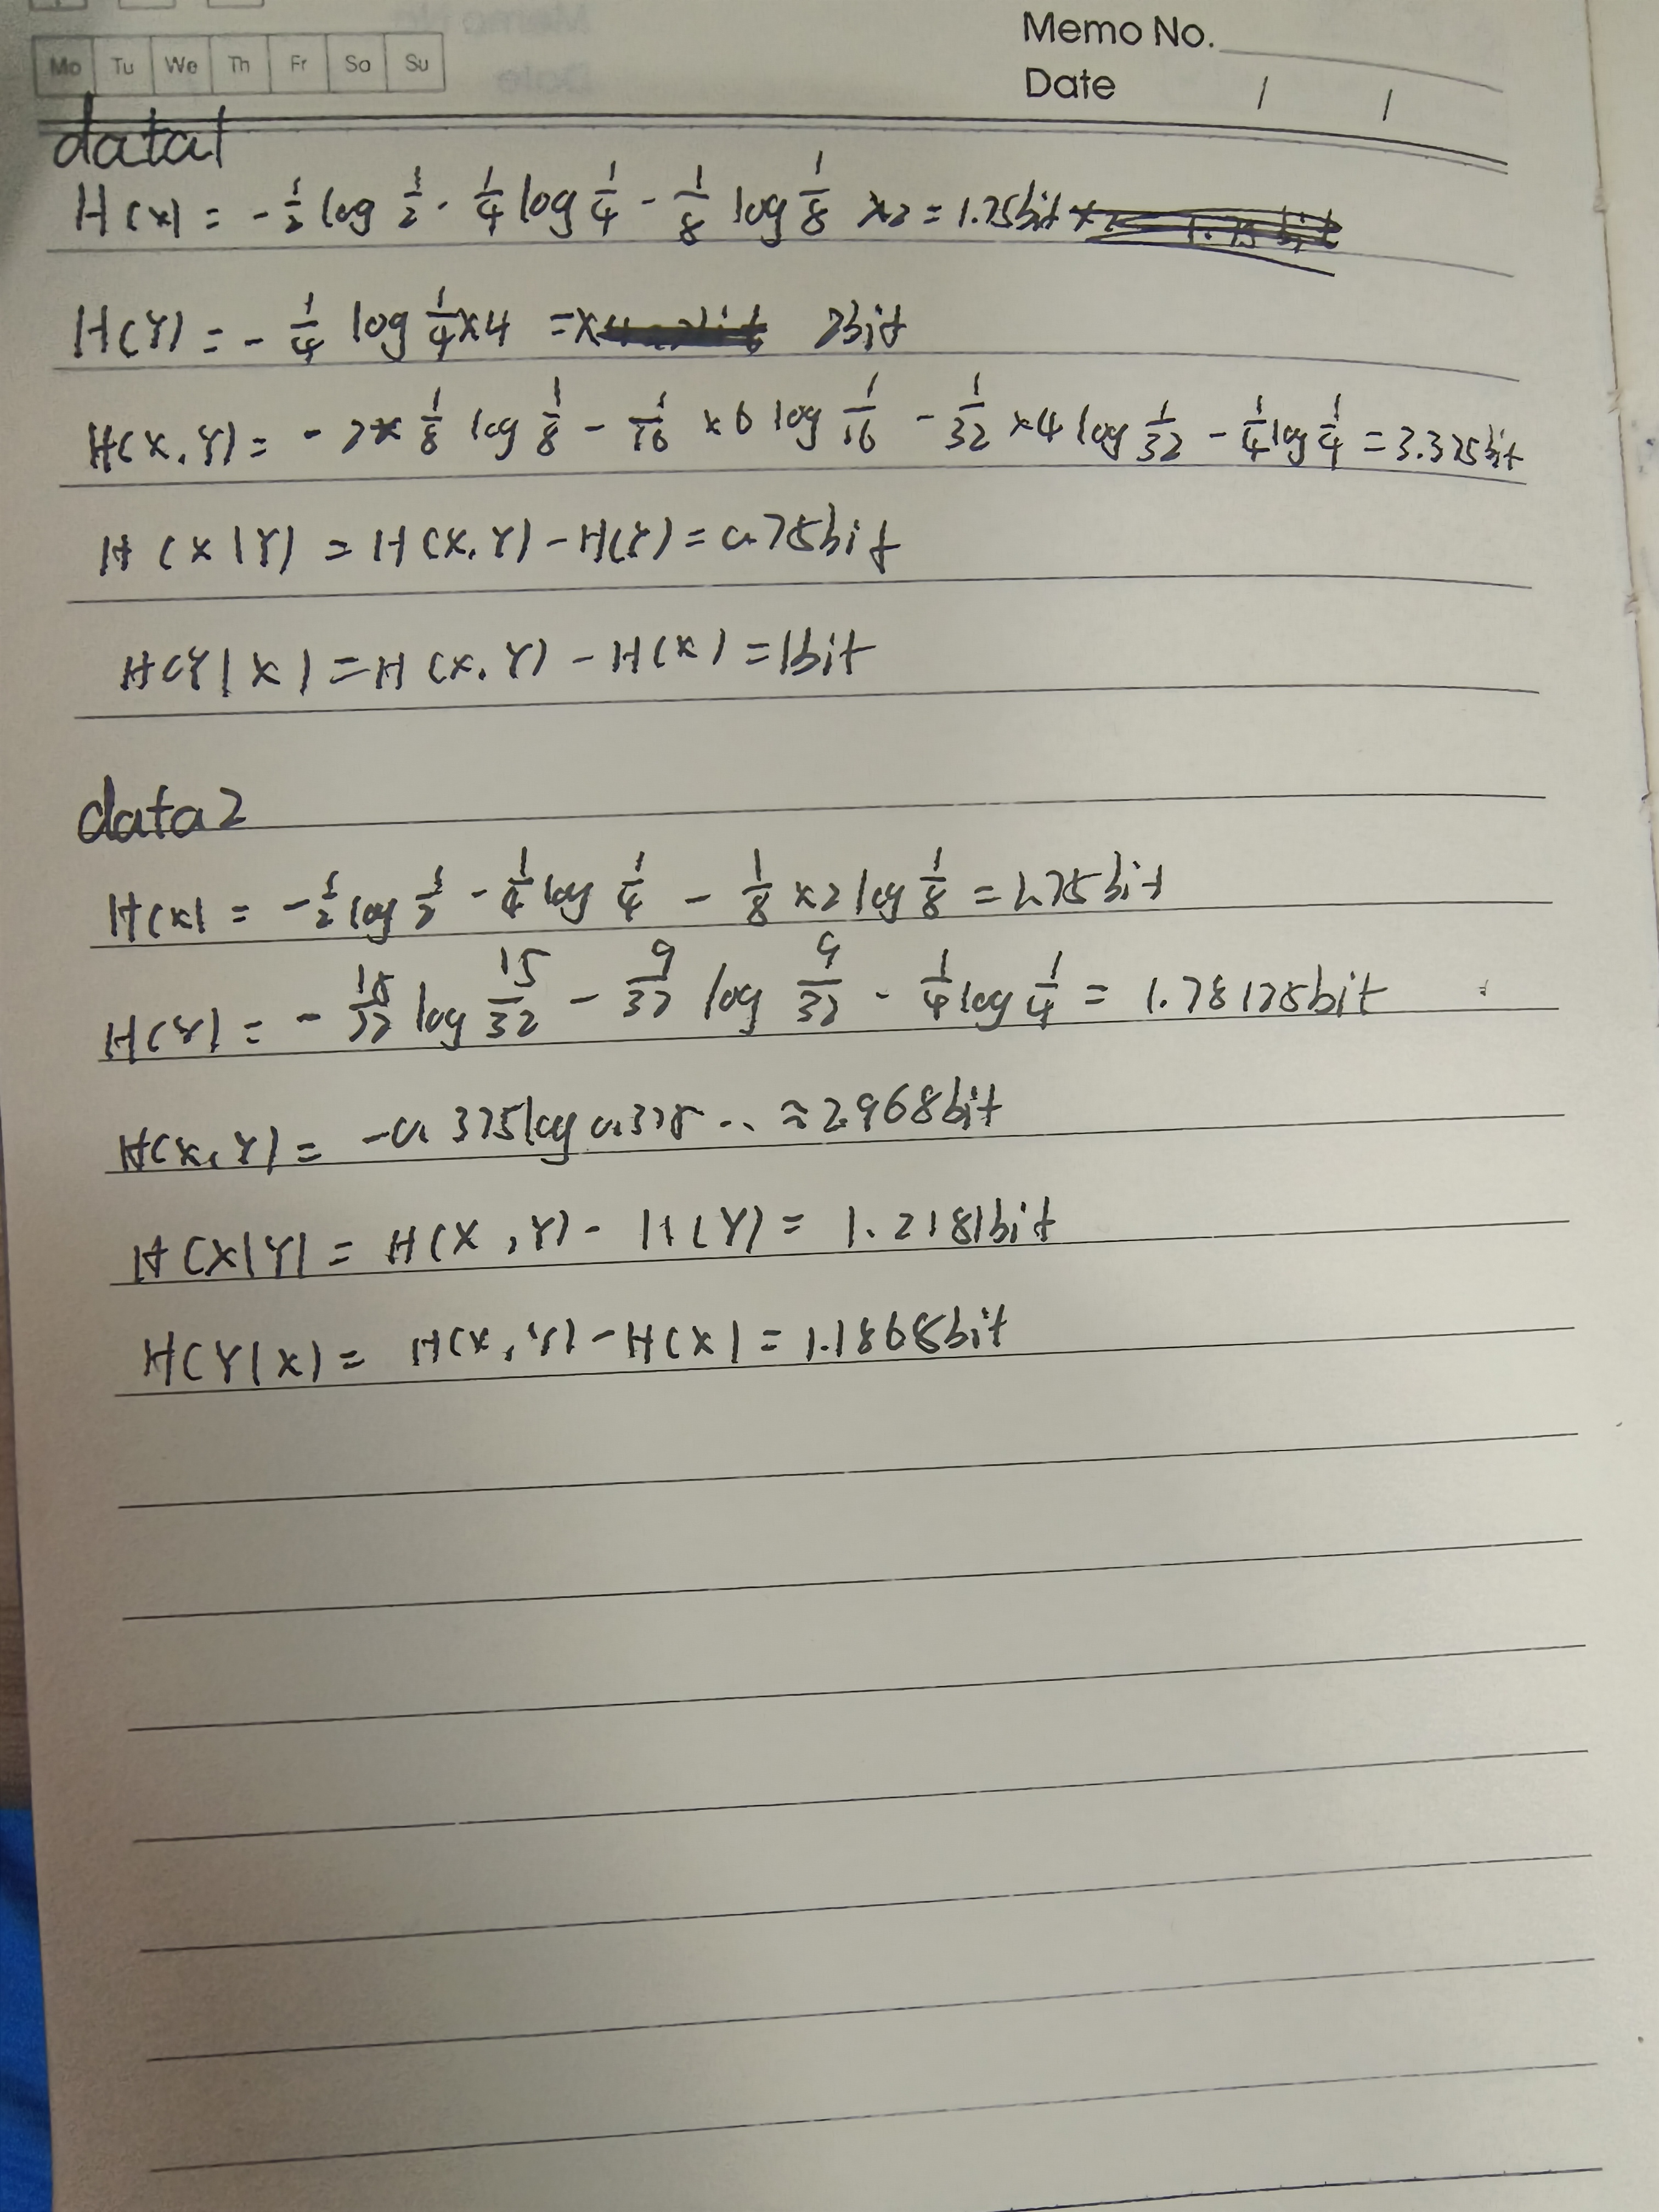 Memo No.
Mo Tu We Th Fr Sa Su
Date / /
data1
H(X) = -1/2 log 1/2 - 1/4 log 1/4 - 1/8 log 1/8 ×2 = 1.75bit
H(Y) = -1/4 log 1/4 ×4 = 2bit
H(X,Y) = -2× 1/8 log 1/8 - 1/16 ×6 log 1/16 - 1/32 ×4 log 1/32 - 1/4 log 1/4 = 3.375bit
H(X|Y) = H(X,Y) - H(Y) = 0.75bit
H(Y|X) = H(X,Y) - H(X) = 1bit
data2
H(X) = -1/2 log 1/2 - 1/4 log 1/4 - 1/8 ×2 log 1/8 = 1.75bit
H(Y) = -15/32 log 15/32 - 9/32 log 9/32 - 1/4 log 1/4 = 1.78125bit
H(X,Y) = -0.375log0.375... ≈2.968bit
H(X|Y) = H(X,Y) - H(Y) = 1.2181bit
H(Y|X) = H(X,Y) - H(X) = 1.1868bit